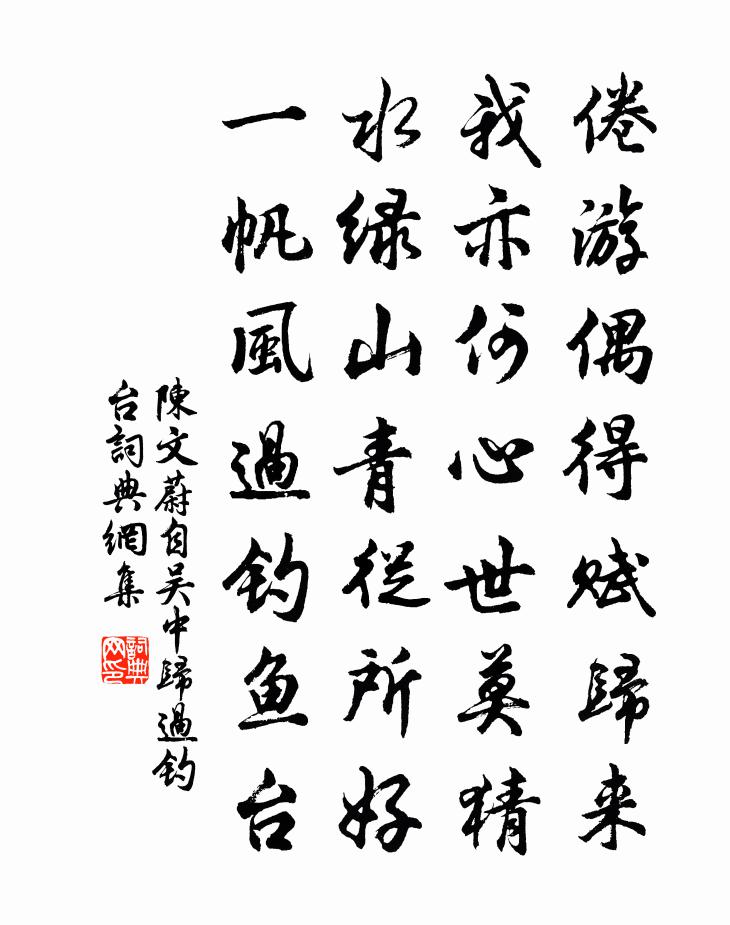 倦游偶得赋歸来
我亦何心世莫猜
水绿山青從所好
一帆風過钓鱼台
陳文蔚自吴中歸過钓
台詞典網集
詞典网印